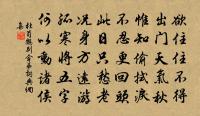 欲住住不得
出門天氣秋
惟知偷拭淚
不忍更回頭
此只愁親老
況身方遠遊
孤寒將五字
何以動諸侯
杜荀鶴別舍弟詞典網
集